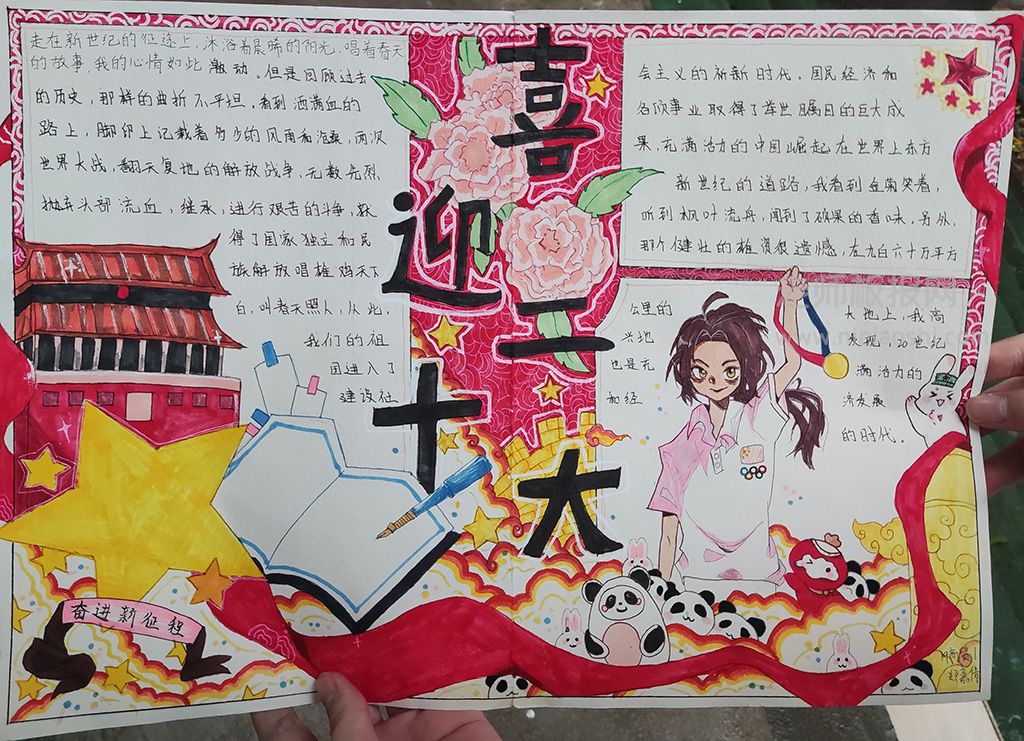 喜迎二十大
走在新世纪的征途上,沐浴着晨晞的阳光,唱着春天
的故事,我的心情如此激动。但是回顾过去
的历史,那样的曲折不平坦,看到洒满血的
路上,脚印上记载着多少的风雨和沧桑,两次
世界大战,翻天复地的解放战争,无数先烈
抛弃头部流血,继承,进行艰苦的斗争,获
得了国家独立和民
族解放唱雄鸡天下
白,叫春天照人,从此,
我们的祖
国进入了
建设社
会主义的祈新时代。国民经济和
各项事业取得了举世瞩目的巨大成
果,充满活力的中国崛起在世界上东方
新世纪的道路,我看到金菊笑着,
听到枫叶流舟,闻到了硕果的香味,另外,
那个健壮的雄资很遗憾,在九白六十万平方
公里的大地上,我高
兴地发现,20世纪
也是充满活力的
和经济发展
的时代。
奋进新征程